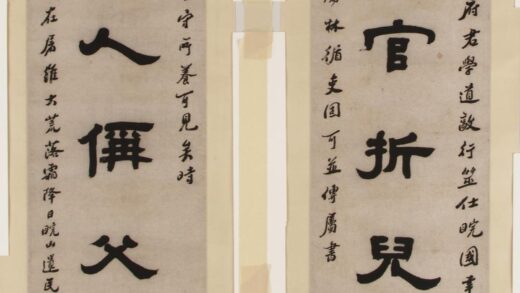 府君學道敦行筮仕晥國
官折兒
林循吏固可並傳屬書
守所養可見矣時
人偁父
在屠維大荒落霜降日晥山遺民